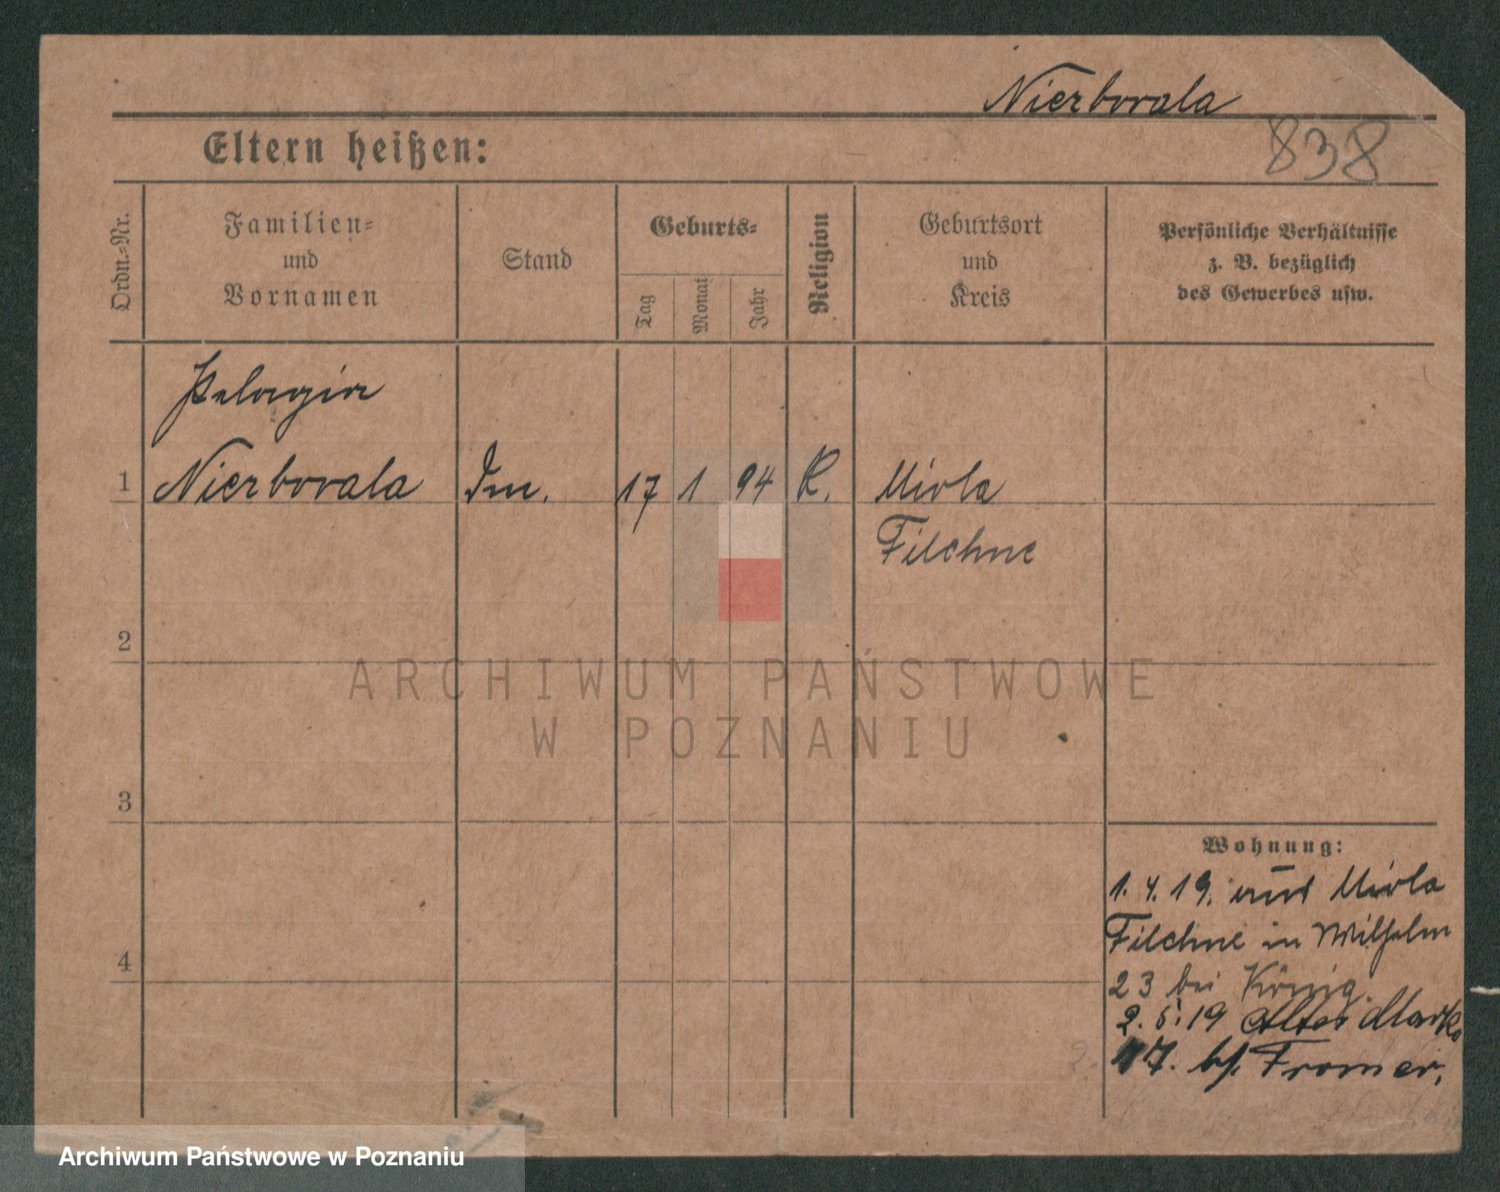 Nierbovala
838
Eltern heißen:
Ordn.-Nr.
Familien-
und
Vornamen
Stand
Geburts-
Tag
Monat
Jahr
Religion
Geburtsort
und
Kreis
Persönliche Verhältnisse
z. B. bezüglich
des Gewerbes usw.
Pelagia
1 Nierbovala 17 1 94 K. Miala
Filehne
2
3
4
Wohnung:
1. 4. 19. aus Miala
Filehne in Wilhelm
23 bei König.
2. 5. 19 Alter Markt
17. b/. Fromer.
ARCHIWUM PAŃSTWOWE
W POZNANIU
Archiwum Państwowe w Poznaniu